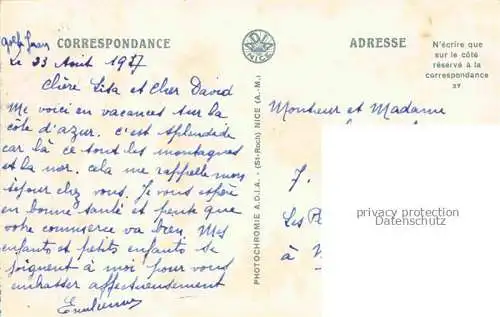 Golfe Juan
CORRESPONDANCE
Le 23 Août 1957
Chère Lisa et Cher David
Me voici en vacances sur la
côte d'azur. c'est splendide
car là ce sont les montagnes
et la mer. cela me rappelle mon
séjour chez vous. Je vous espère
en bonne santé et pense que
votre commerce va bien. Mes
enfants et petits enfants se
joignent à moi pour vous
embrasser affectueusement
ADIA
NICE
PHOTOCHROMIE A.D.I.A. - (St-Roch) NICE (A.-M.)
ADRESSE
N'écrire que
sur le côté
réservé à la
correspondance
27
Monsieur et Madame
J.
Les
à
privacy protection
Datenschutz